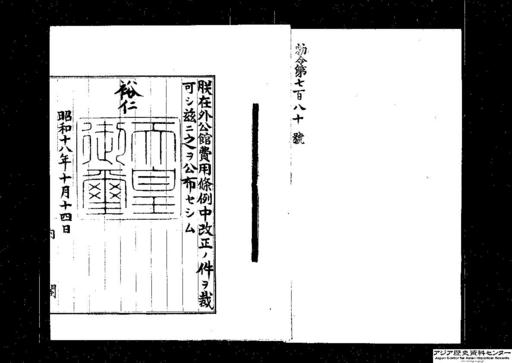 勅令第七百八十號
朕在外公館費用條例中改正ノ件ヲ裁
可シ茲ニ之ヲ公布セシム
裕仁
天皇御璽
昭和十八年十月十四日
内閣
アジア歴史資料センター
Japan Center for Asian Historical Records